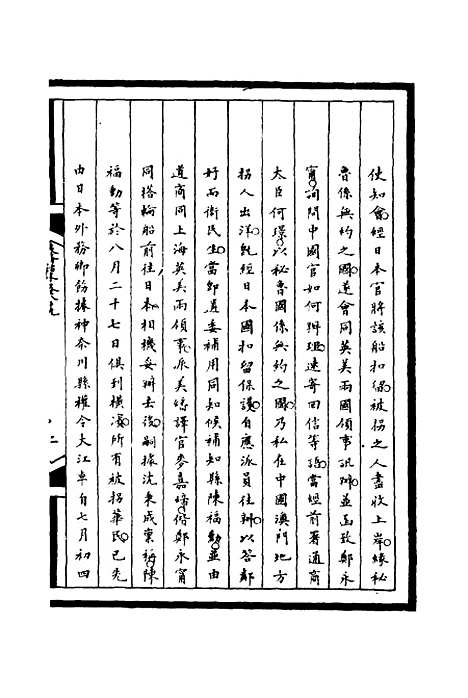 使知會經日本官將該船扣留被拐之人盡收上岸緣秘
魯係無約之國遂會同英美兩國領事訊辦並函致鄭永
甯詢問中國官如何辦理速寄回信等語當經前署通商
大臣何璟以秘魯國係無約之國乃私在中國澳門地方
拐人出洋旣經日本國扣留保護自應派員往辦以答鄰
好而衞民生當卽遴委補用同知候補知縣陳福勳並由
道商同上海英美兩領事派美繙譯官麥嘉締偕鄭永甯
同搭輪船前往日本相機妥辦去後嗣據沈秉成稟稱陳
福勳等於八月二十七日俱到橫濱所有被拐華民已先
由日本外務卿飭據神奈川縣權令大江卓自七月初四